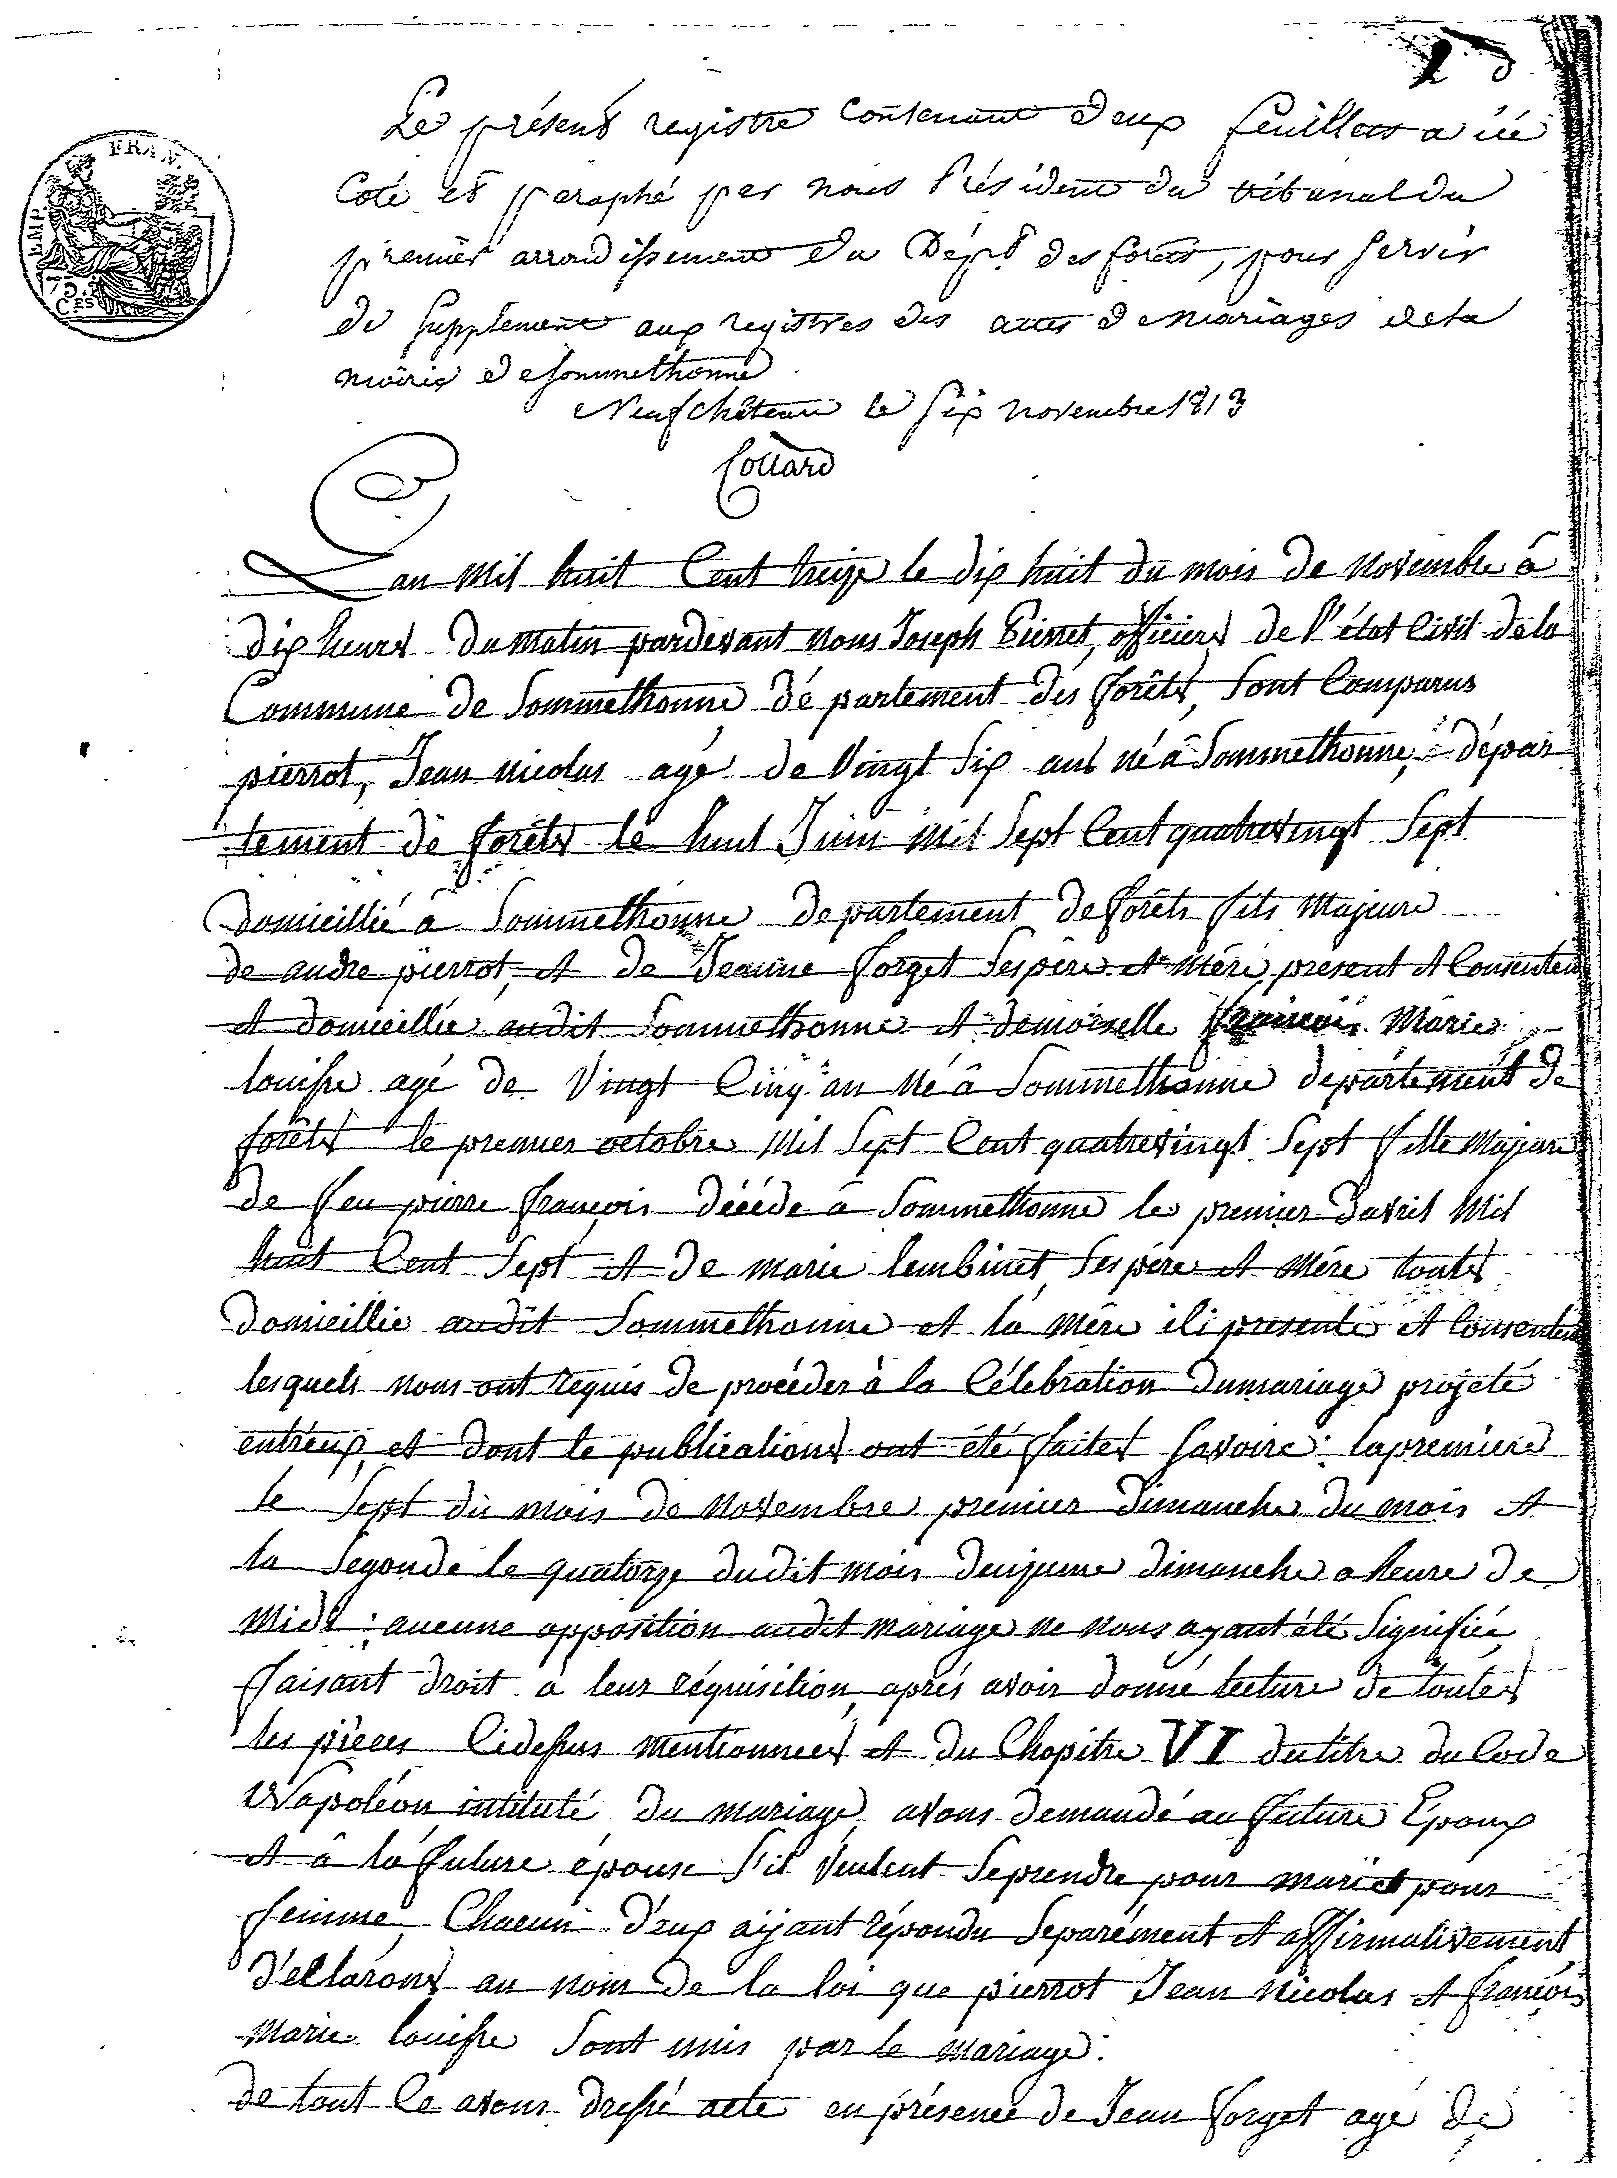 Le présent registre contenant deux feuillets a été
Coté et paraphé par nous Président du tribunal du
premier arrondissement du Dépt des forêts, pour servir
de Supplement aux registres des actes de mariages de la
mairie de Sommethonne
Neufchâteau le Six novembre 1813
Collard
EMP. FRAN.
75. Ces
L'an mil huit Cent treize le dix huit du mois de novembre â
dix heures du matin pardevant nous Joseph Pierret, officiers de l'état Civil de la
Commune de Sommethonne dé partement des forêts, Sont Comparus
pierrot, Jean nicolas agé de Vingt Six ans né â Sommethonne, dépar
tement de forêts le huit Juin mil Sept Cent quatrevingt Sept
domicillié â Sommethonne departement de forêts fils Majeure
de andre pierrot, et de Jeanne forget Ses père et Mére, present et Consenten
et domicillié audit Sommethonne et demoiselle françois Marie
louisse agé de Vingt Cinq an Né â Sommethonne departement de
forêts le premier octobre Mil Sept Cent quatrevingt Sept fille Majeure
de feu pierre françois décéde â Sommethonne le premier davril Mil
huit Cent Sept et de marie Ses pére et Mére touts
domicillié audit Sommethonne et la mére ili presente et Consenten
lesquels nous ont requis de procéder à la Célébration du mariage projeté
entreux, et dont le publications ont été faites Savoire : la premiere
le Sept du mois de Novembre premier dimanche du mois et
la Segonde le quatorze dudit mois deuxieme dimanche a heure de
Midi : aucune opposition audit mariage ne nous ayant été Signifiée,
faisant droit a leur réquisition, aprés avoir donné lecture de toutes
les pièces Cidessus mentionnees et du Chapitre VI du titre du Code
Napoléon intitulé du mariage, avons demandé au future Epoux
et â la future épouse S'il Veulent Seprendre pour mari et pour
femme, Chacun d'eux aijant répondu Separément et affirmativement,
d'éclarons au nom de la loi que pierrot Jean Nicolas et françois
Marie louisse Sont unis par le mariage :
de tout Ce avons dressé acte en présence de Jean forget agé de